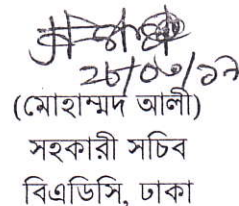 ২৮/০৩/১৭
(মোহাম্মদ আলী)
সহকারী সচিব
বিএডিসি, ঢাকা